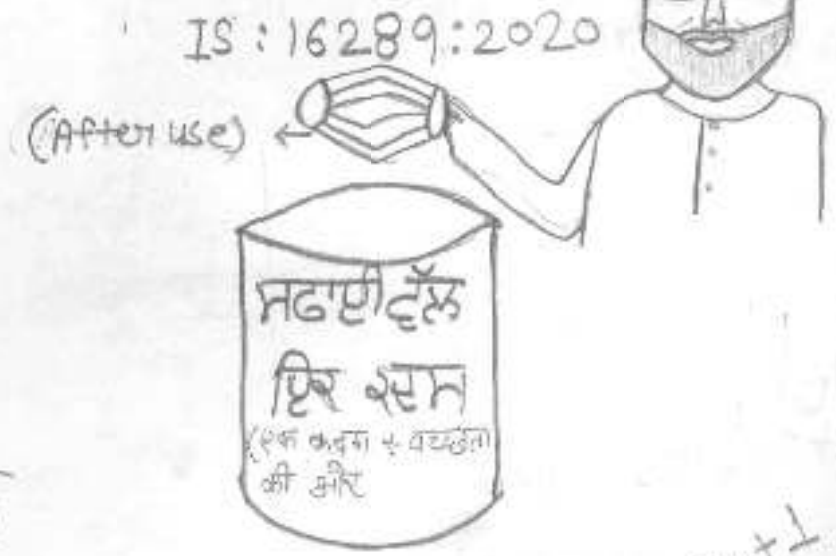 IS : 16289 : 2020
(After use)
ਸਫਾਈ ਵੱਲ
ਇਕ ਕਦਮ
(एक कदम स्वच्छता
की और
+1